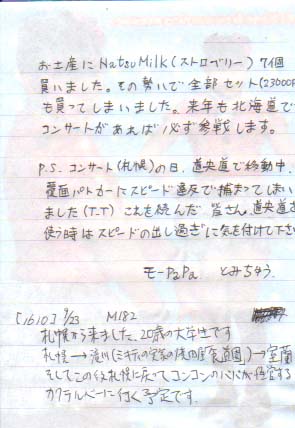 お土産にNatsuMilk(ストロベリー)7個
買いました。その勢いで全部セット(23000
も買ってしまいました。来年も北海道で
コンサートがあれば必ず参戦します。
P.S. コンサート(札幌)の日、道央道で移動中、
覆面パトカーにスピード違反で捕まってしまい
ました(T.T) これを読んだ皆さん、道央道を
使う時はスピードの出し過ぎに気を付けて下さ
モーPaPa とみちゅう
[1610] 9/23 M182
札幌から来ました、20歳の大学生です
札幌→滝川(ミキティの実家の焼肉屋 )→室蘭
そしてこの後札幌に戻ってコンコンのパパが経営する
カクテルバーに行く予定です。